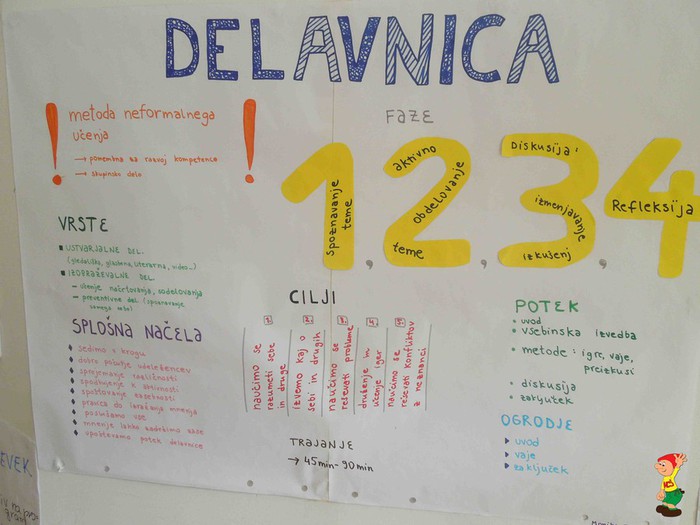 DELAVNICA
! metoda neformalnega !
učenja
→ pomembna za razvoj kompetence
→ skupinsko delo
FAZE
1, 2, 3, 4
spoznavanje
teme
aktivno
obdelovanje
teme
Diskusija,
izmenjavanje
izkušenj
Refleksija
VRSTE
USTVARJALNE DEL.
(gledališka, glasbena, literarna, video...)
IZOBRAŽEVALNE DEL.
- učenje načrtovanja, sodelovanja
- preventivne del.
SPLOŠNA NAČELA
sedimo v krogu
dobro počutje udeležencev
sprejemanje različnosti
spodbujanje k aktivnosti
spoštovanje zasebnosti
pravica do izražanja mnenja
poslušamo vse
mnenje lahko zadržimo zase
upoštevamo potek delavnice
CILJI
naučimo se
razumeti sebe
in druge
izvemo kaj o
sebi in drugih
naučimo se
reševati probleme
druženje in
učenje iger
naučimo se
reševati konfliktov
z neznanci
TRAJANJE
→ 45min-90min
POTEK
uvod
vsebinska izvedba
metode: igre, vaje,
preizkusi
diskusija
zaključek
OGRODJE
uvod
vaje
zaključek
EVEK